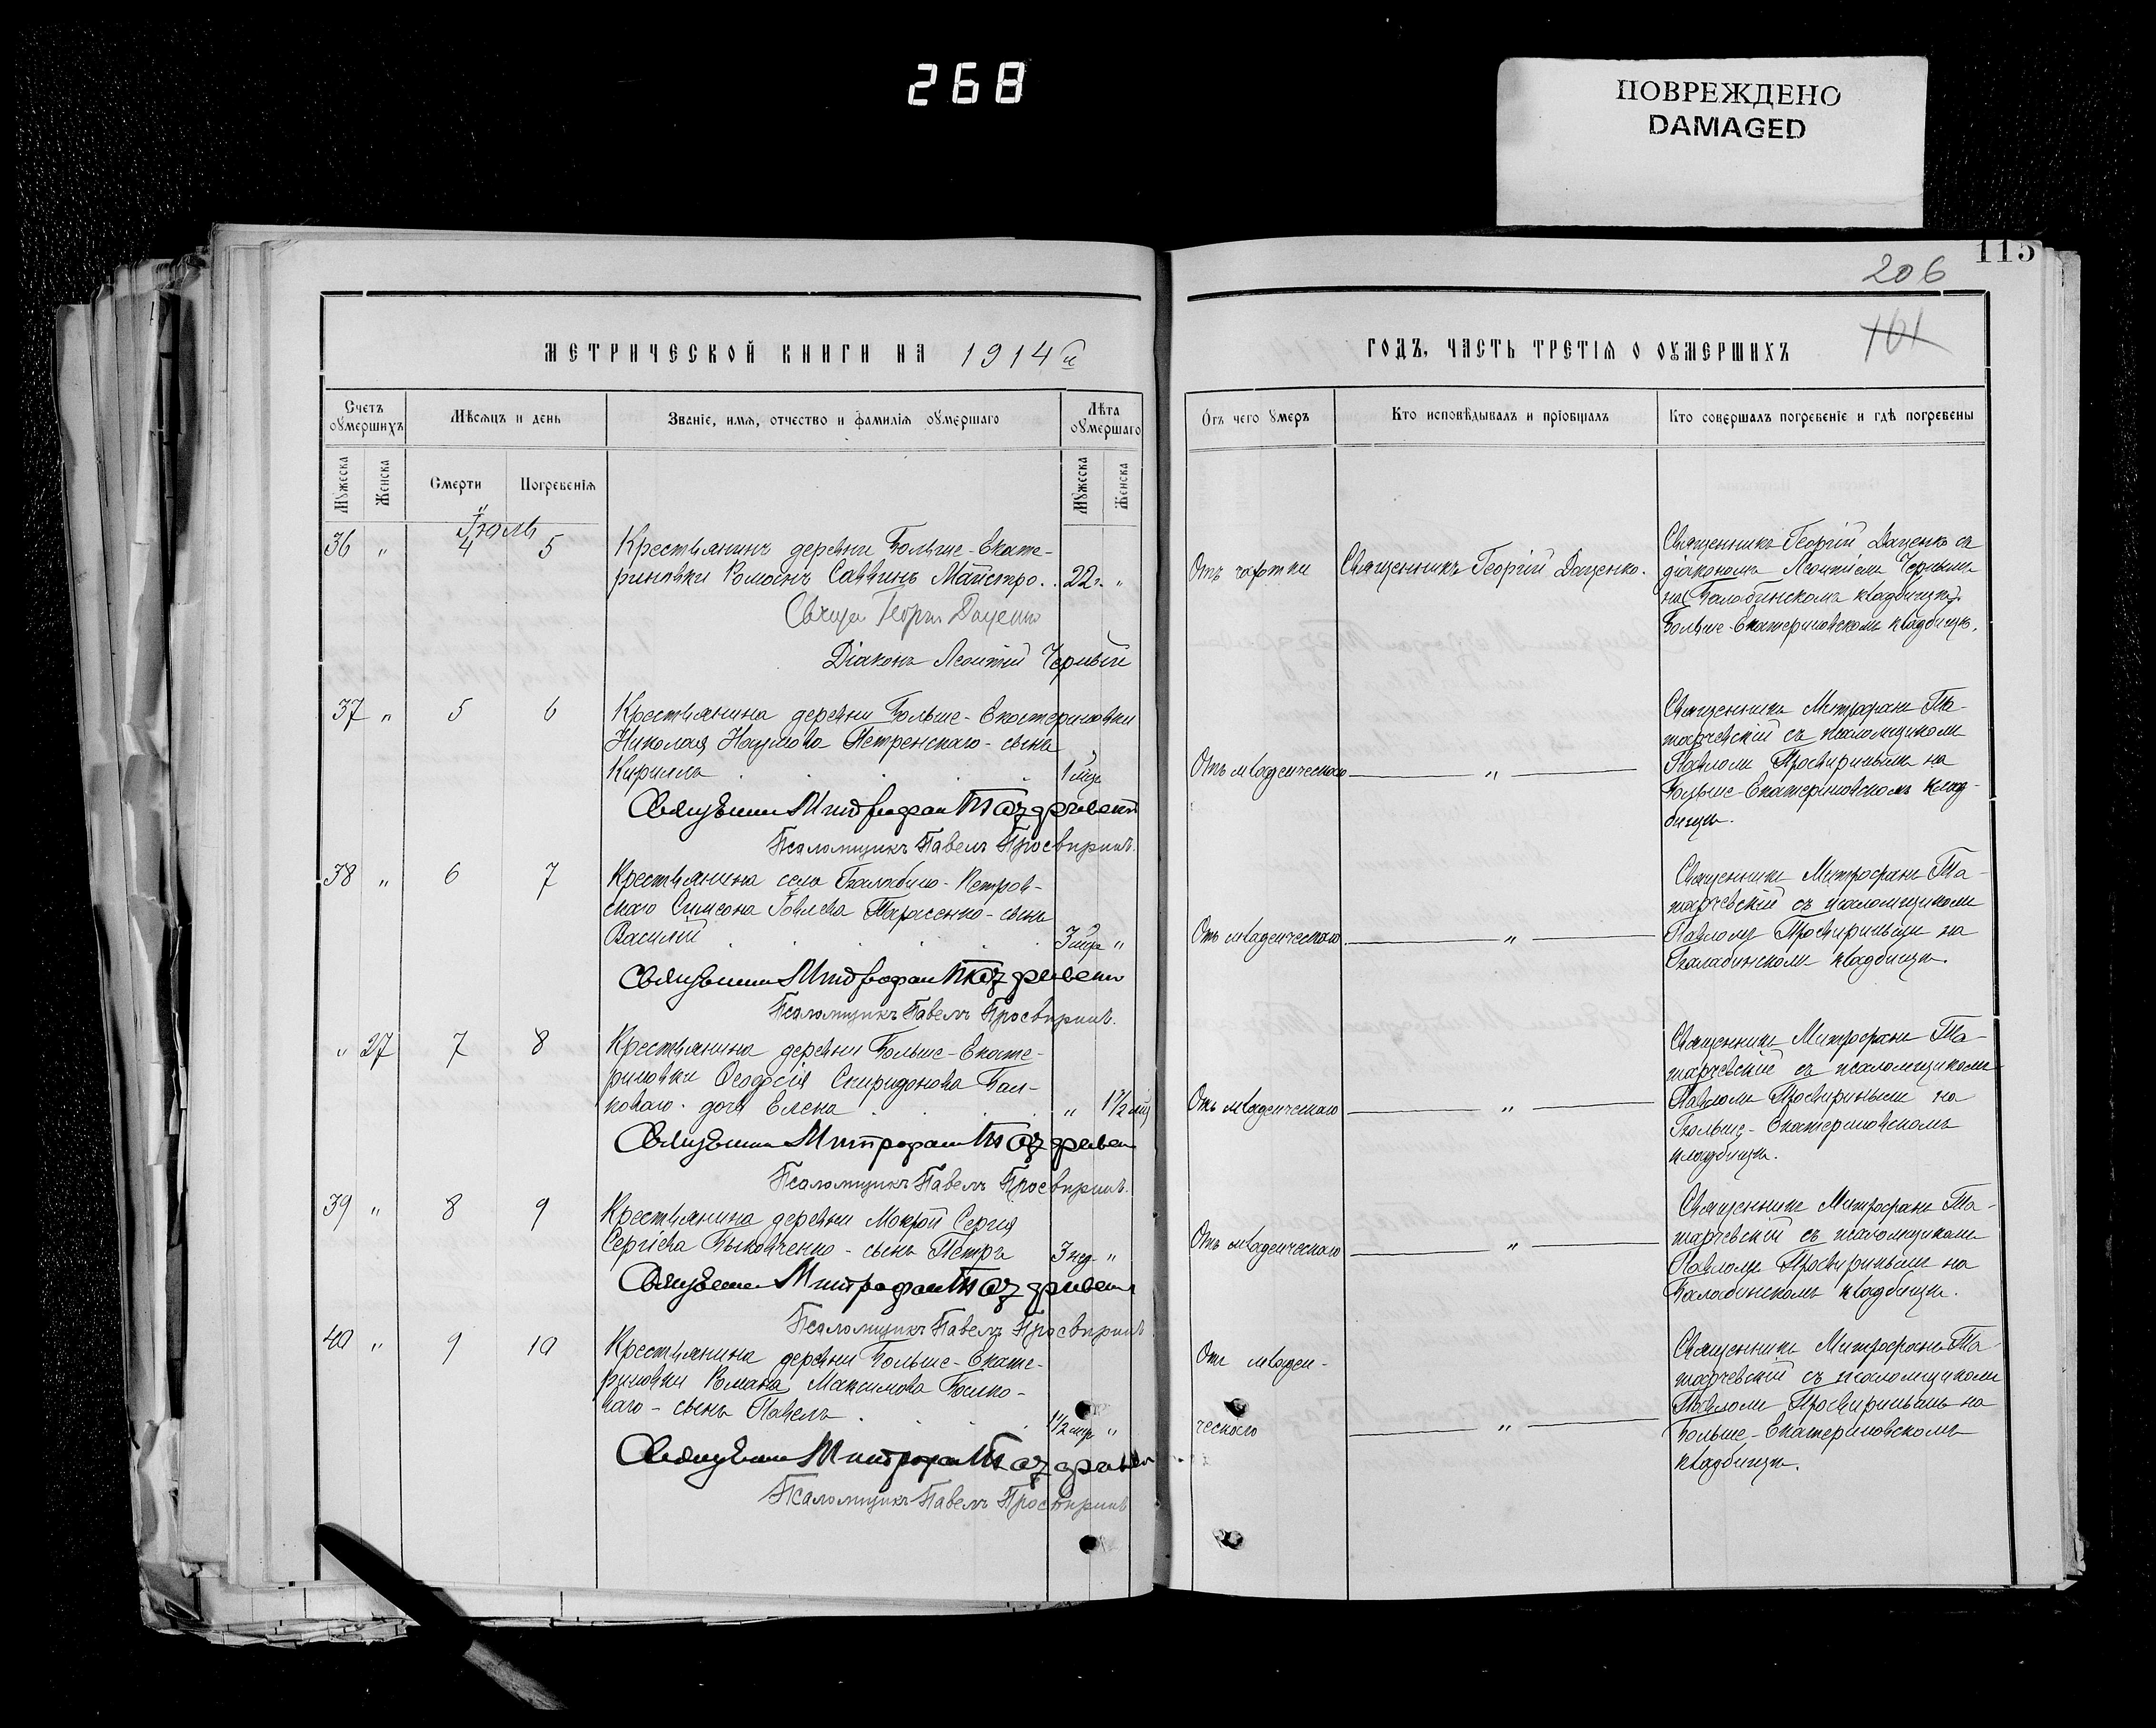 268
ПОВРЕЖДЕНО
DAMAGED
115
206
101
МЕТРИЧЕСКОЙ КНИГИ НА 1914 й
ГОДЪ, ЧАСТЬ ТРЕТІЯ О ОУМЕРШИХЪ
Счетъ оумершихъ
Мѣсяцъ и день
Званіе, имя, отчество и фамилія оумершаго
Лѣта оумершаго
Отъ чего умеръ
Кто исповѣдывалъ и пріобщалъ
Кто совершалъ погребеніе и гдѣ погребены
Мужеска
Женска
Смерти
Погребенія
Мужеска
Женска
Іюль
36 " 4 5
Крестьянинъ деревни Больше-Екате-
риновки Романъ Саввинъ Майстро. 22 г. "
Георгій Даценко
Діаконъ Леонтій Черный
Отъ чахотки
Священникъ Георгій Даценко.
Священникъ Георгій Даценко съ
діакономъ Леонтіемъ Чернымъ
на (Балабинскомъ кладбищѣ)
Больше-Екатериновскомъ кладбищѣ.
37 " 5 6
Крестьянина деревни Больше-Екатериновки
Николая Наумова Петренскаго - сынъ
Кириллъ 1 мца
Священникъ Митрофанъ
Псаломщикъ Павелъ Просвиринъ.
Отъ младенческаго "
Священникъ Митрофанъ Та-
тарчевскій съ псаломщикомъ
Павломъ Просвиринымъ на
Больше-Екатериновскомъ клад-
бищѣ.
38 " 6 7
Крестьянина села Балабино-Петров-
скаго Симеона Іовлева Тарасенко - сынъ
Василій 3 мца "
Священникъ Митрофанъ
Псаломщикъ Павелъ Просвиринъ.
Отъ младенческаго "
Священникъ Митрофанъ Та-
тарчевскій съ псаломщикомъ
Павломъ Просвиринымъ на
Балабинскомъ кладбищѣ.
" 27 7 8
Крестьянина деревни Больше-Екате-
риновки Ѳеодосія Спиридонова
дочь Елена " 1 1/2 мц
Священникъ Митрофанъ
Псаломщикъ Павелъ Просвиринъ.
Отъ младенческаго "
Священникъ Митрофанъ Та-
тарчевскій съ псаломщикомъ
Павломъ Просвиринымъ на
Больше-Екатериновскомъ
кладбищѣ.
39 " 8 9
Крестьянина деревни Мокрой Сергія
Сергіева Быковченко - сынъ Петръ 3 нед. "
Священникъ Митрофанъ
Псаломщикъ Павелъ Просвиринъ
Отъ младенческаго "
Священникъ Митрофанъ Та-
тарчевскій съ псаломщикомъ
Павломъ Просвиринымъ на
Балабинскомъ кладбищѣ.
40 " 9 10
Крестьянина деревни Больше-Екате-
риновки Романа Максимова
сынъ Павелъ 1 1/2 мца "
Священникъ Митрофанъ
Псаломщикъ Павелъ Просвиринъ
Отъ младен-
ческаго "
Священникъ Митрофанъ Та-
тарчевскій съ псаломщикомъ
Павломъ Просвиринымъ на
Больше-Екатериновскомъ
кладбищѣ.